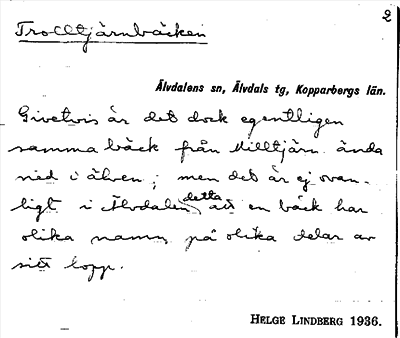 2
Trolltjärnbäcken
Älvdalens sn, Älvdals tg, Kopparbergs län.
Givetvis är det dock egentligen
samma bäck från Milltjärn ända
ned i älven; men det är ej ovan-
ligt i Älvdalen detta att en bäck har
olika namn på olika delar av
sitt lopp.
HELGE LINDBERG 1936.